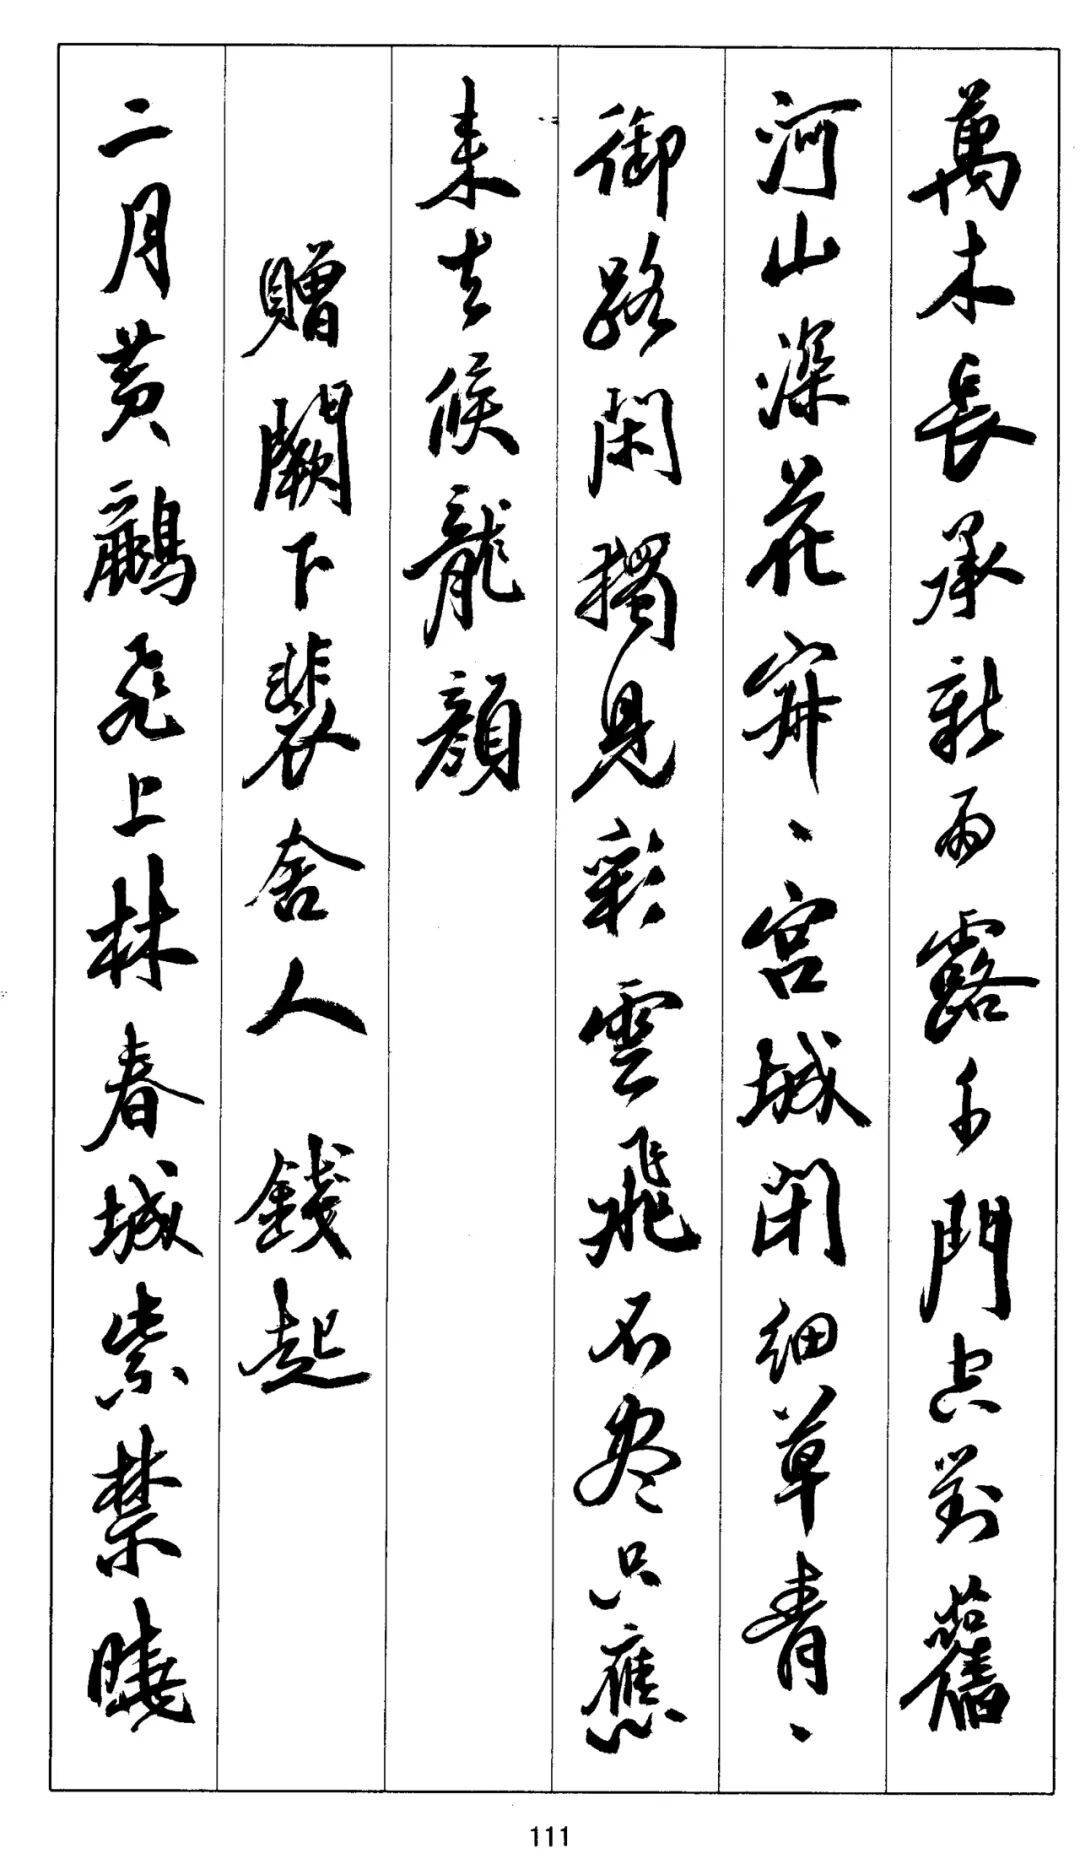 萬木長承新雨露千門空對舊
河山深花寂、宮城閉細草青、
御路閑獨見彩雲飛不盡只應
來去候龍顏
贈闕下裴舍人 錢起
二月黃鸝飛上林春城紫禁曉
111